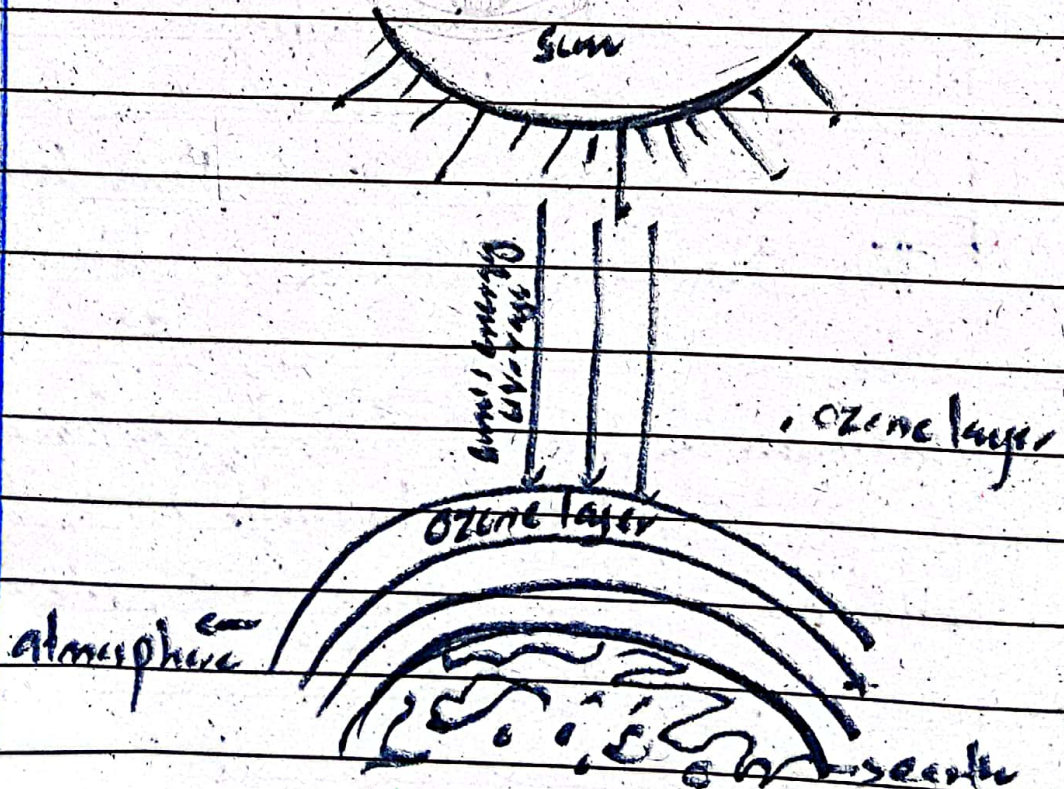 Sun
Sun's energy
UV-rays
ozone layer
ozone layer
atmosphere
earth